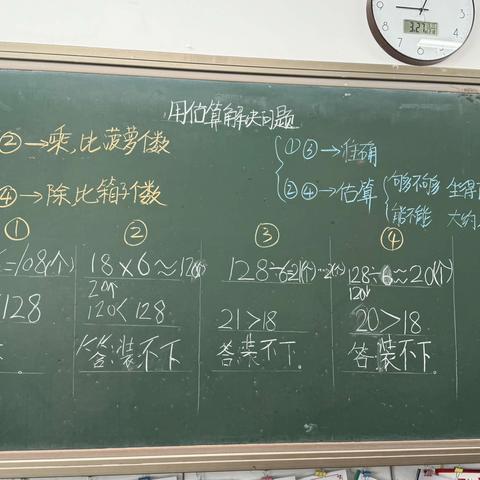 用估算解决问题
②→乘,比菠萝个数
④→除,比箱子个数
①③→准确
②④→估算
够不够
能不能
①
=108(个)
128
②
18×6≈120(个)
20
120<128
答:装不下
③
128÷6=21(个)…2(个)
21>18
答:装不下。
④
128÷6≈20(个)
120
20>18
答:装不下。